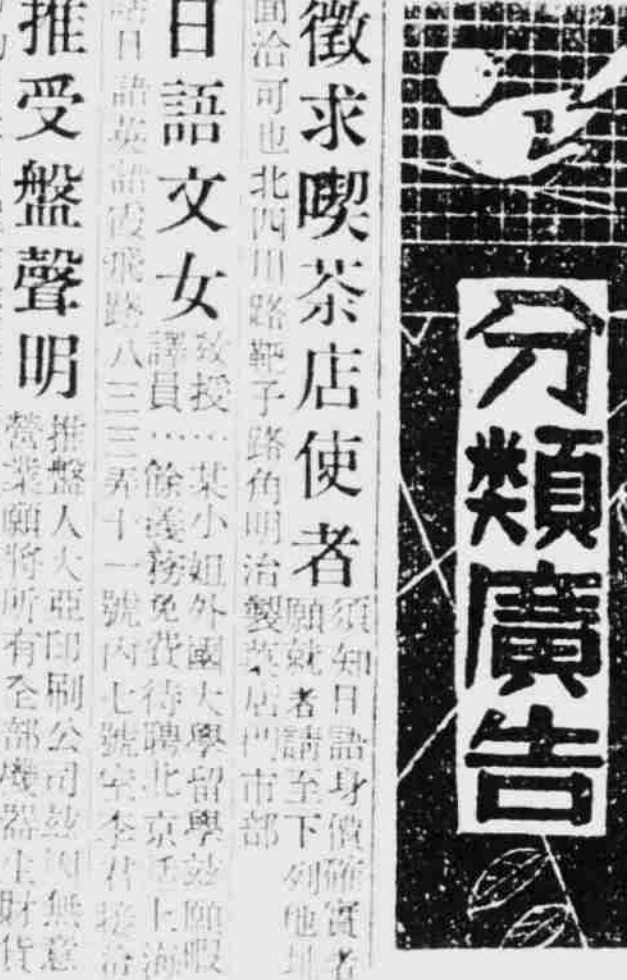 分類廣告
徵求喫茶店使者
須知日語身價確實者
願就者請至下列地址
面洽可也北四川路靶子路角明治製菓店門市部
日語文女
教授…某小姐外國大學留學茲願暇
譯員…餘義務免費待聘北京話上海
話日語英語霞飛路八三三弄十一號內七號室李君接洽
推受盤聲明
推盤人大亞印刷公司茲因無意
營業願將所有全部機器生財貨